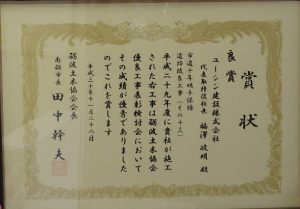 賞状
良賞
ユーシン建設株式会社
代表取締役社長 福澤 殿
市道十年明千保線
道路改良工事(その十三)
平成二十九年度に貴社が施工
された右工事は砺波土木協会
優良工事表彰検討会において
その成績が優秀でありました
のでこれを賞します
平成三十年十一月二十八日
砺波土木協会会長
南砺市長 田中幹夫